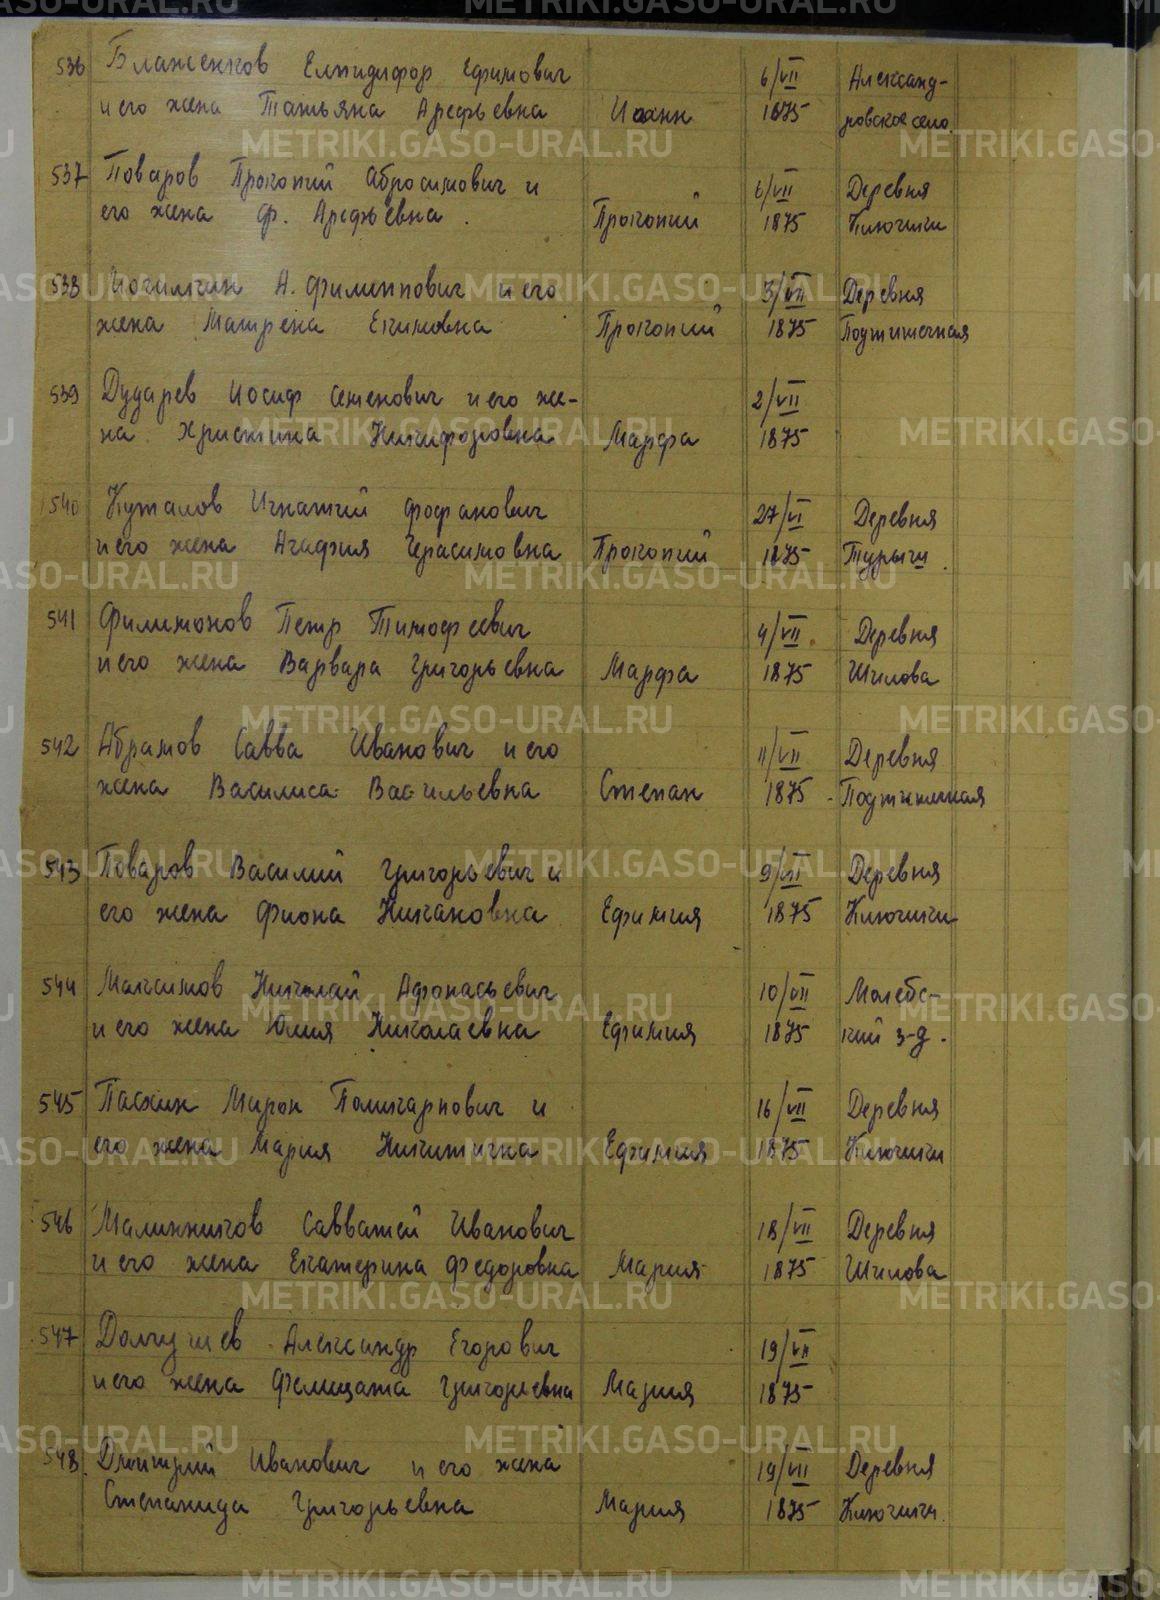 METRIKI.GASO-URAL.RU
536 Блаженков Елпидифор Ефимович 6/VII Александ-
и его жена Татьяна Арефьевна Иоанн 1875 ровское село.
537 Поваров Прокопий Абросимович и 6/VII Деревня
его жена Ф. Арефьевна. Прокопий 1875 Ключики
538 А. Филиппович и его 3/VII Деревня
жена Матрена Екимовна Прокопий 1875
539 Дударев Иосиф Семенович и его же- 2/VII
на Христина Никифоровна Марфа 1875
540 Куталов Игнатий Фофанович 27/VI Деревня
и его жена Агафия Герасимовна Прокопий 1875 Турыги.
541 Филимонов Петр Тимофеевич 4/VII. Деревня
и его жена Варвара Григорьевна Марфа 1875 Шилова
542 Абрамов Савва Иванович и его 11/VII Деревня
жена Василиса Васильевна Степан 1875
543 Поваров Василий Григорьевич и 9/VII Деревня
его жена Фиона Никановна Ефимия 1875 Ключики
544 Максимов Николай Афонасьевич 10/VII Молебс-
и его жена Юлия Николаевна Ефимия 1875 кий з-д.
545 Паскин Мирон Поликарпович и 16/VII Деревня
его жена Мария Никитична Ефимия 1875 Ключики
546 Малинников Савватей Иванович 18/VII Деревня
и его жена Екатерина Федоровна Мария 1875 Шилова
547 Долгушев Александр Егорович 19/VII
и его жена Фелицата Григорьевна Мария 1875
548. Дмитрий Иванович и его жена 19/VII Деревня
Степанида Григорьевна Мария 1875 Ключики.